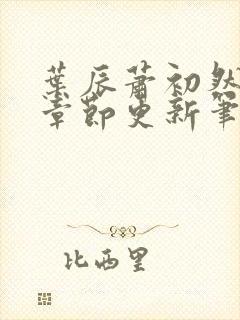 葉辰蕭初然
章節更新筆
比西里